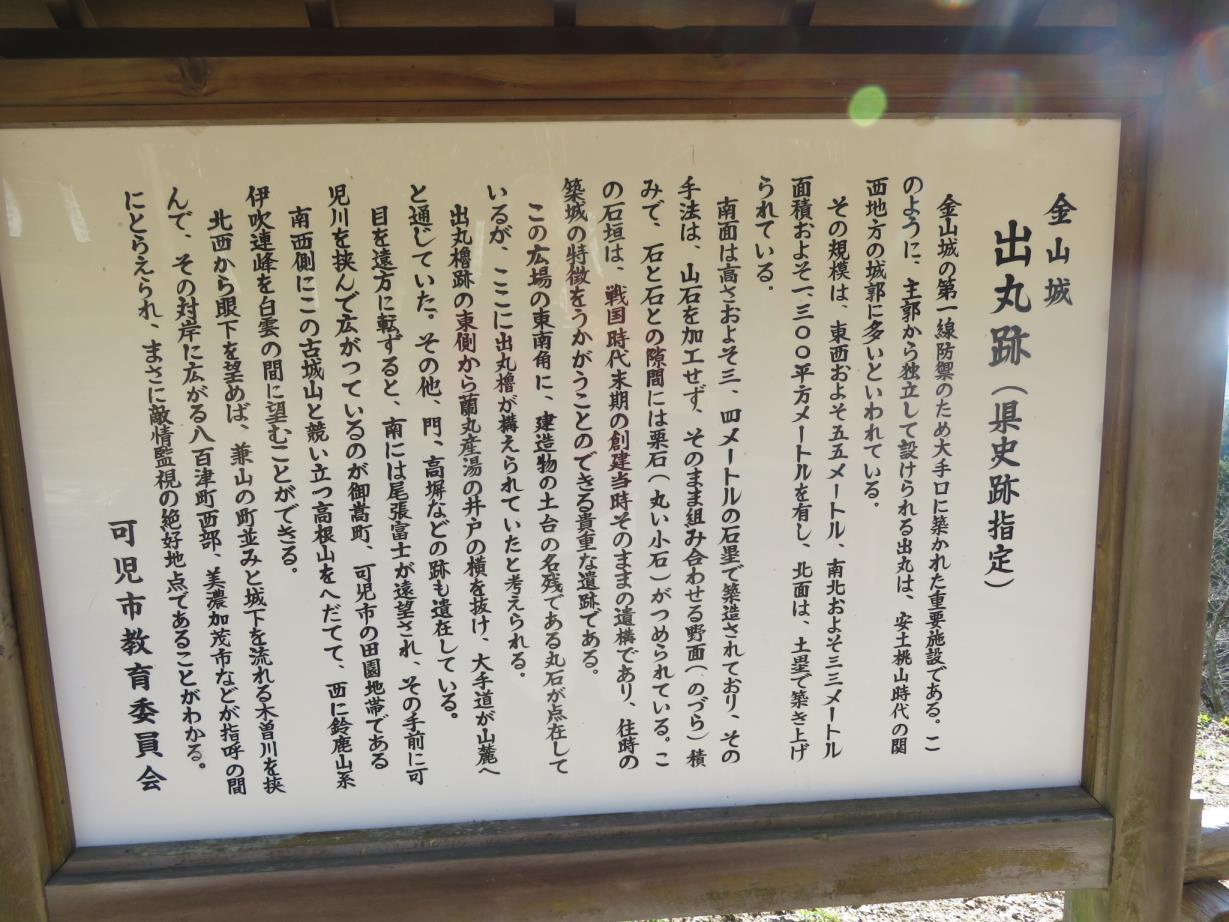 金山城
出丸跡（県史跡指定）
金山城の第一線防禦のため大手口に築かれた重要施設である。こ
のように、主郭から独立して設けられる出丸は、安土桃山時代の関
西地方の城郭に多いといわれている。
その規模は、東西およそ五五メートル、南北およそ三三メートル
面積およそ一、三〇〇平方メートルを有し、北面は、土塁で築き上げ
られている。
南面は高さおよそ三、四メートルの石塁で築造されており、その
手法は、山石を加工せず、そのまま組み合わせる野面（のづら）積
みで、石と石との隙間には栗石（丸い小石）がつめられている。こ
の石垣は、戦国時代末期の創建当時そのままの遺構であり、往時の
築城の特徴をうかがうことのできる貴重な遺跡である。
この広場の東南角に、建造物の土台の名残である丸石が点在して
いるが、ここに出丸櫓が構えられていたと考えられる。
出丸櫓跡の東側から蘭丸産湯の井戸の横を抜け、大手道が山麓へ
と通じていた。その他、門、高塀などの跡も遺在している。
目を遠方に転ずると、南には尾張富士が遠望され、その手前に可
児川を挟んで広がっているのが御嵩町、可児市の田園地帯である
南西側にこの古城山と競い立つ高根山をへだてて、西に鈴鹿山系
伊吹連峰を白雲の間に望むことができる。
北西から眼下を望めば、兼山の町並みと城下を流れる木曽川を挟
んで、その対岸に広がる八百津町西部、美濃加茂市などが指呼の間
にとらえられ、まさに敵情監視の絶好地点であることがわかる。
可児市教育委員会